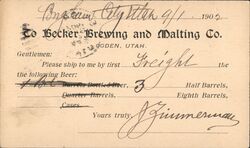 Brigham City Utah 9/1 1902
To Becker Brewing and Malting Co.
OGDEN, UTAH.
Gentlemen:
Please ship to me by first Freight the
the following Beer:
Barrels Bottle Beer. 3 Half Barrels,
Quarter Barrels, Eighth Barrels,
Cases.
Yours truly, J Zimmerman